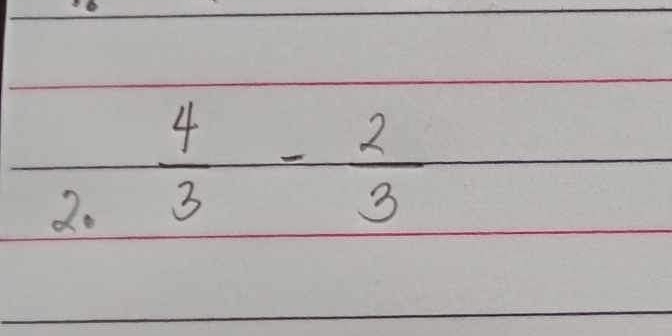 2. 4/3 - 2/3